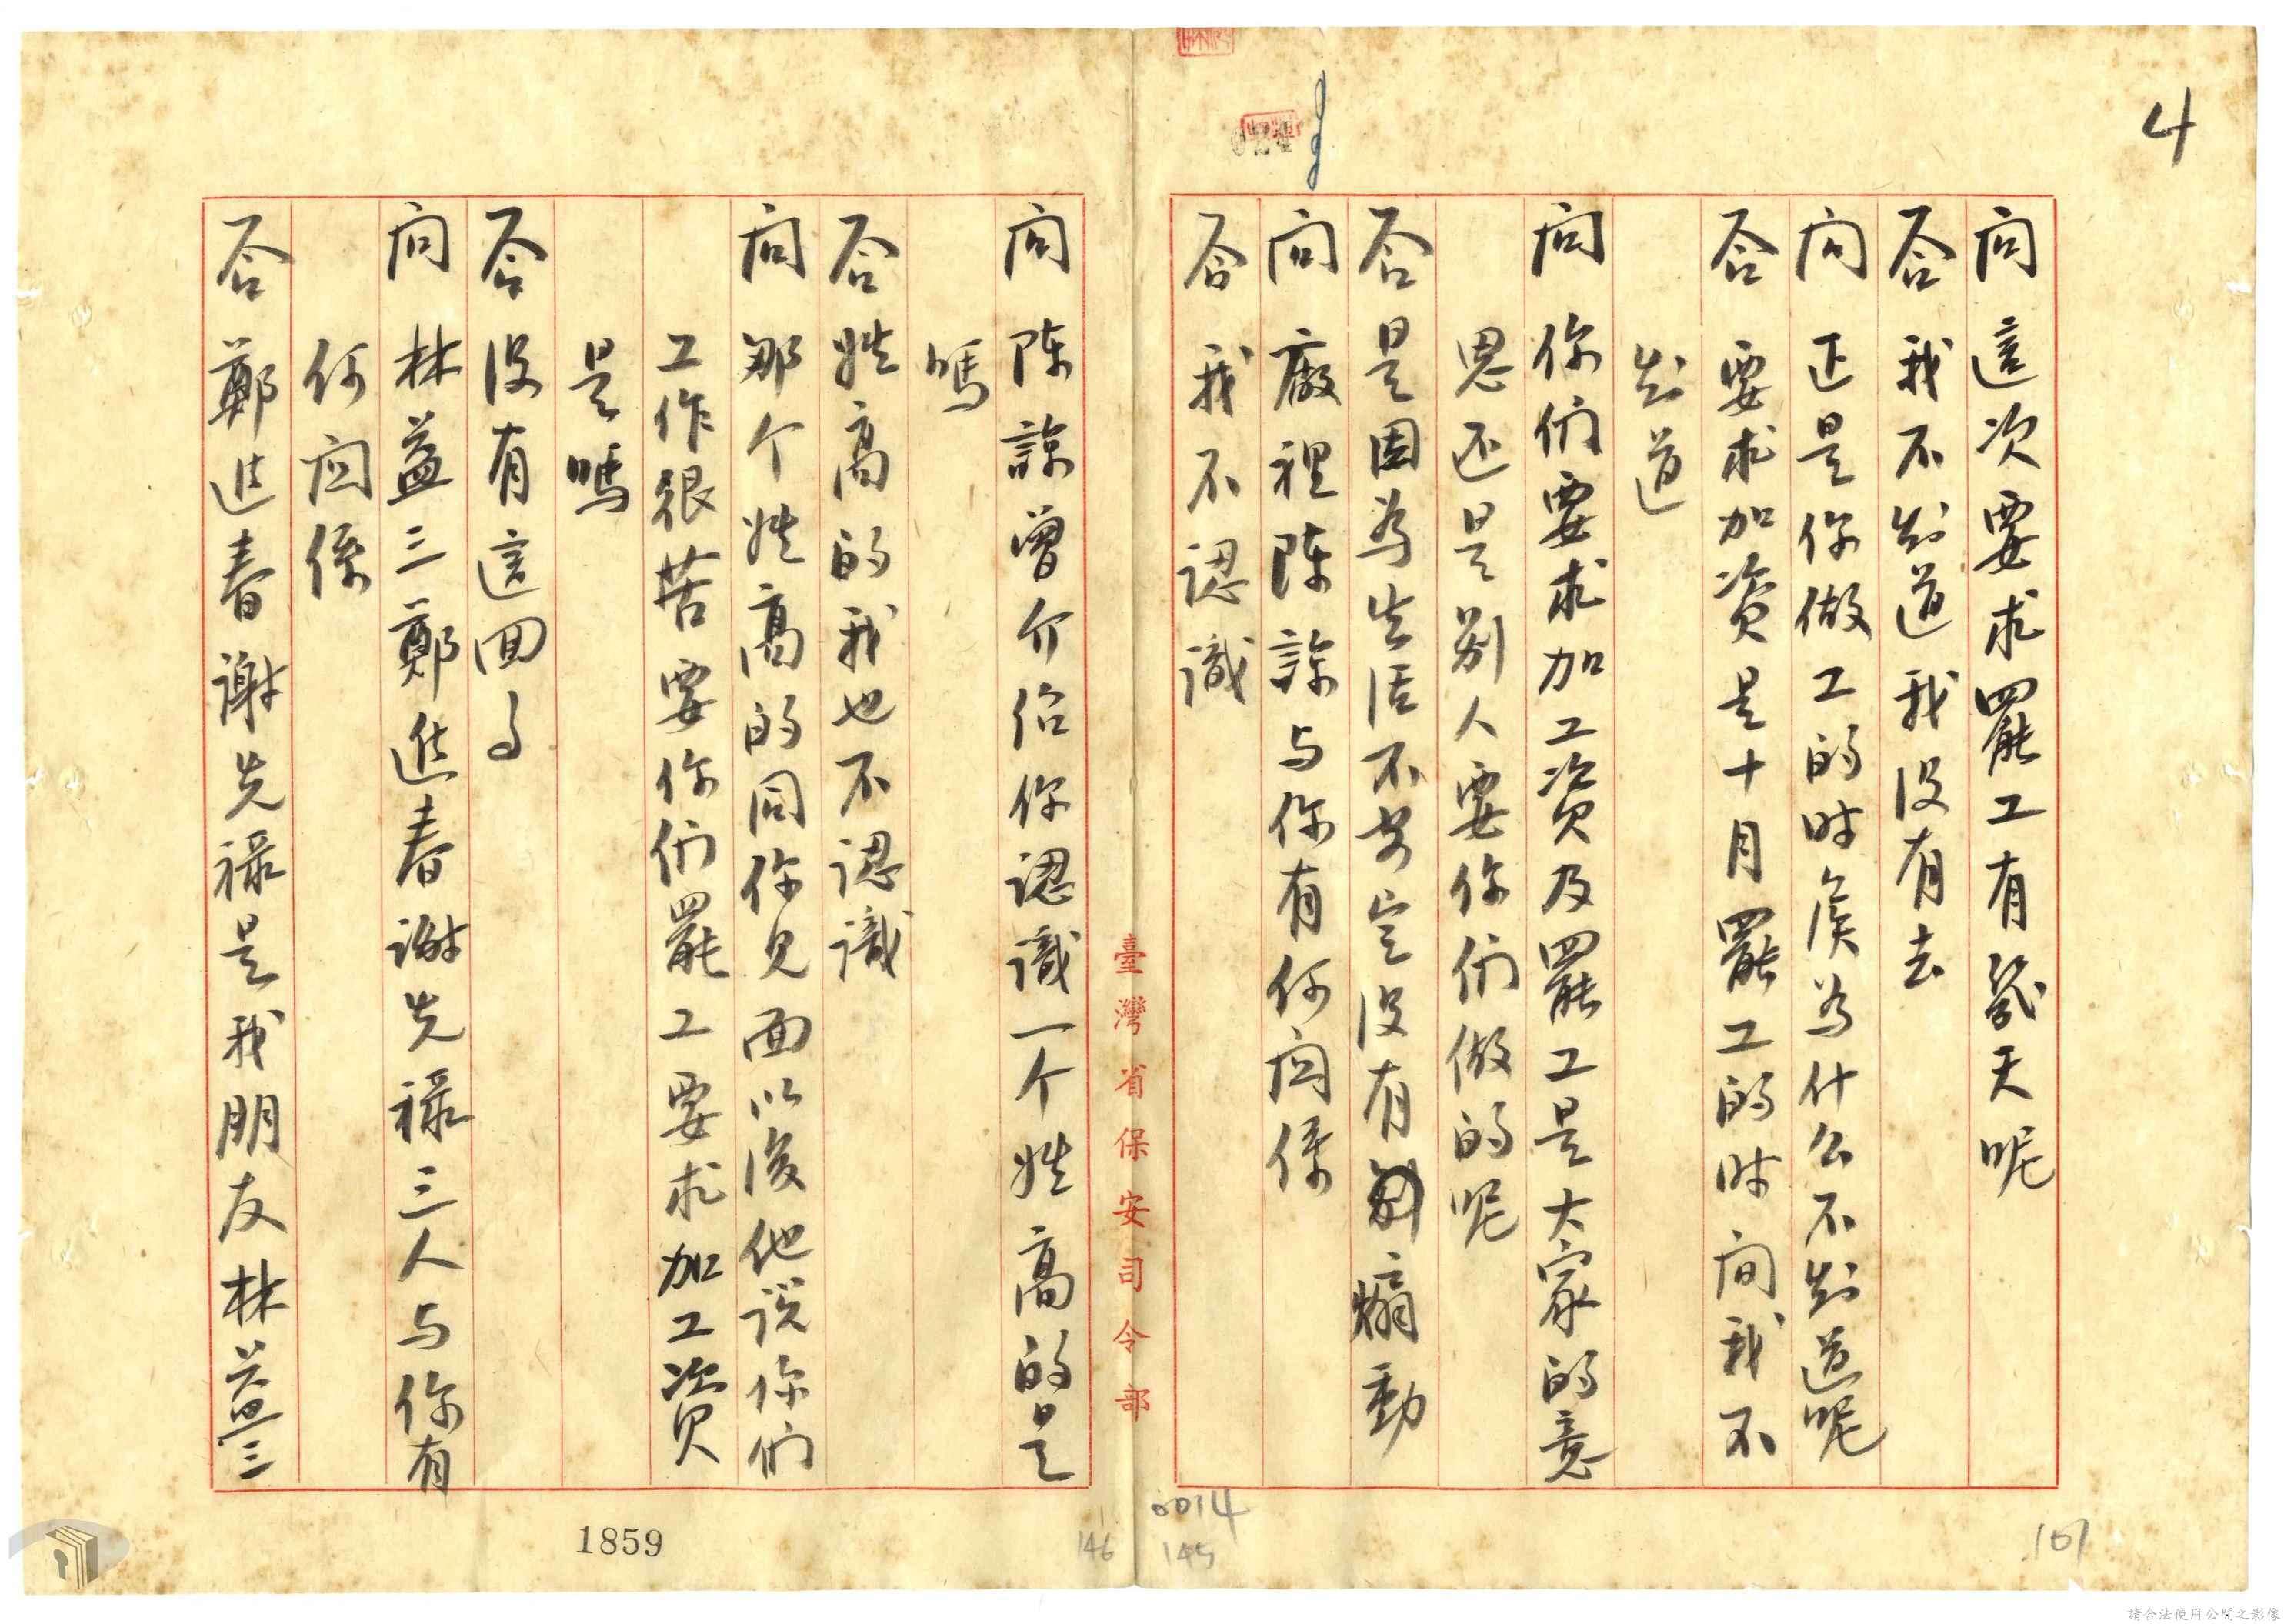 4
問 這次要求罷工有幾天呢
答 我不知道我沒有去
問 正是你做工的时候為什么不知道呢
答 要求加資是十月罷工的时间我不
知道
問 你们要求加工資及罷工是大家的意
思还是别人要你们做的呢
答 是因為生活不安定沒有煽動
問 廠裡陳諒与你有何関係
答 我不認識
臺灣省保安司令部
問 陳諒曾介绍你認識一个姓高的是
嗎
答 姓高的我也不認識
問 那个姓高的同你見面以後他説你们
工作很苦要你们罷工要求加工資
是嗎
答 沒有這回事
問 林益三鄭進春謝先祿三人与你有
何関係
答 鄭進春謝先祿是我朋友林益三
0014
145
146
107
1859
請合法使用公開之影像